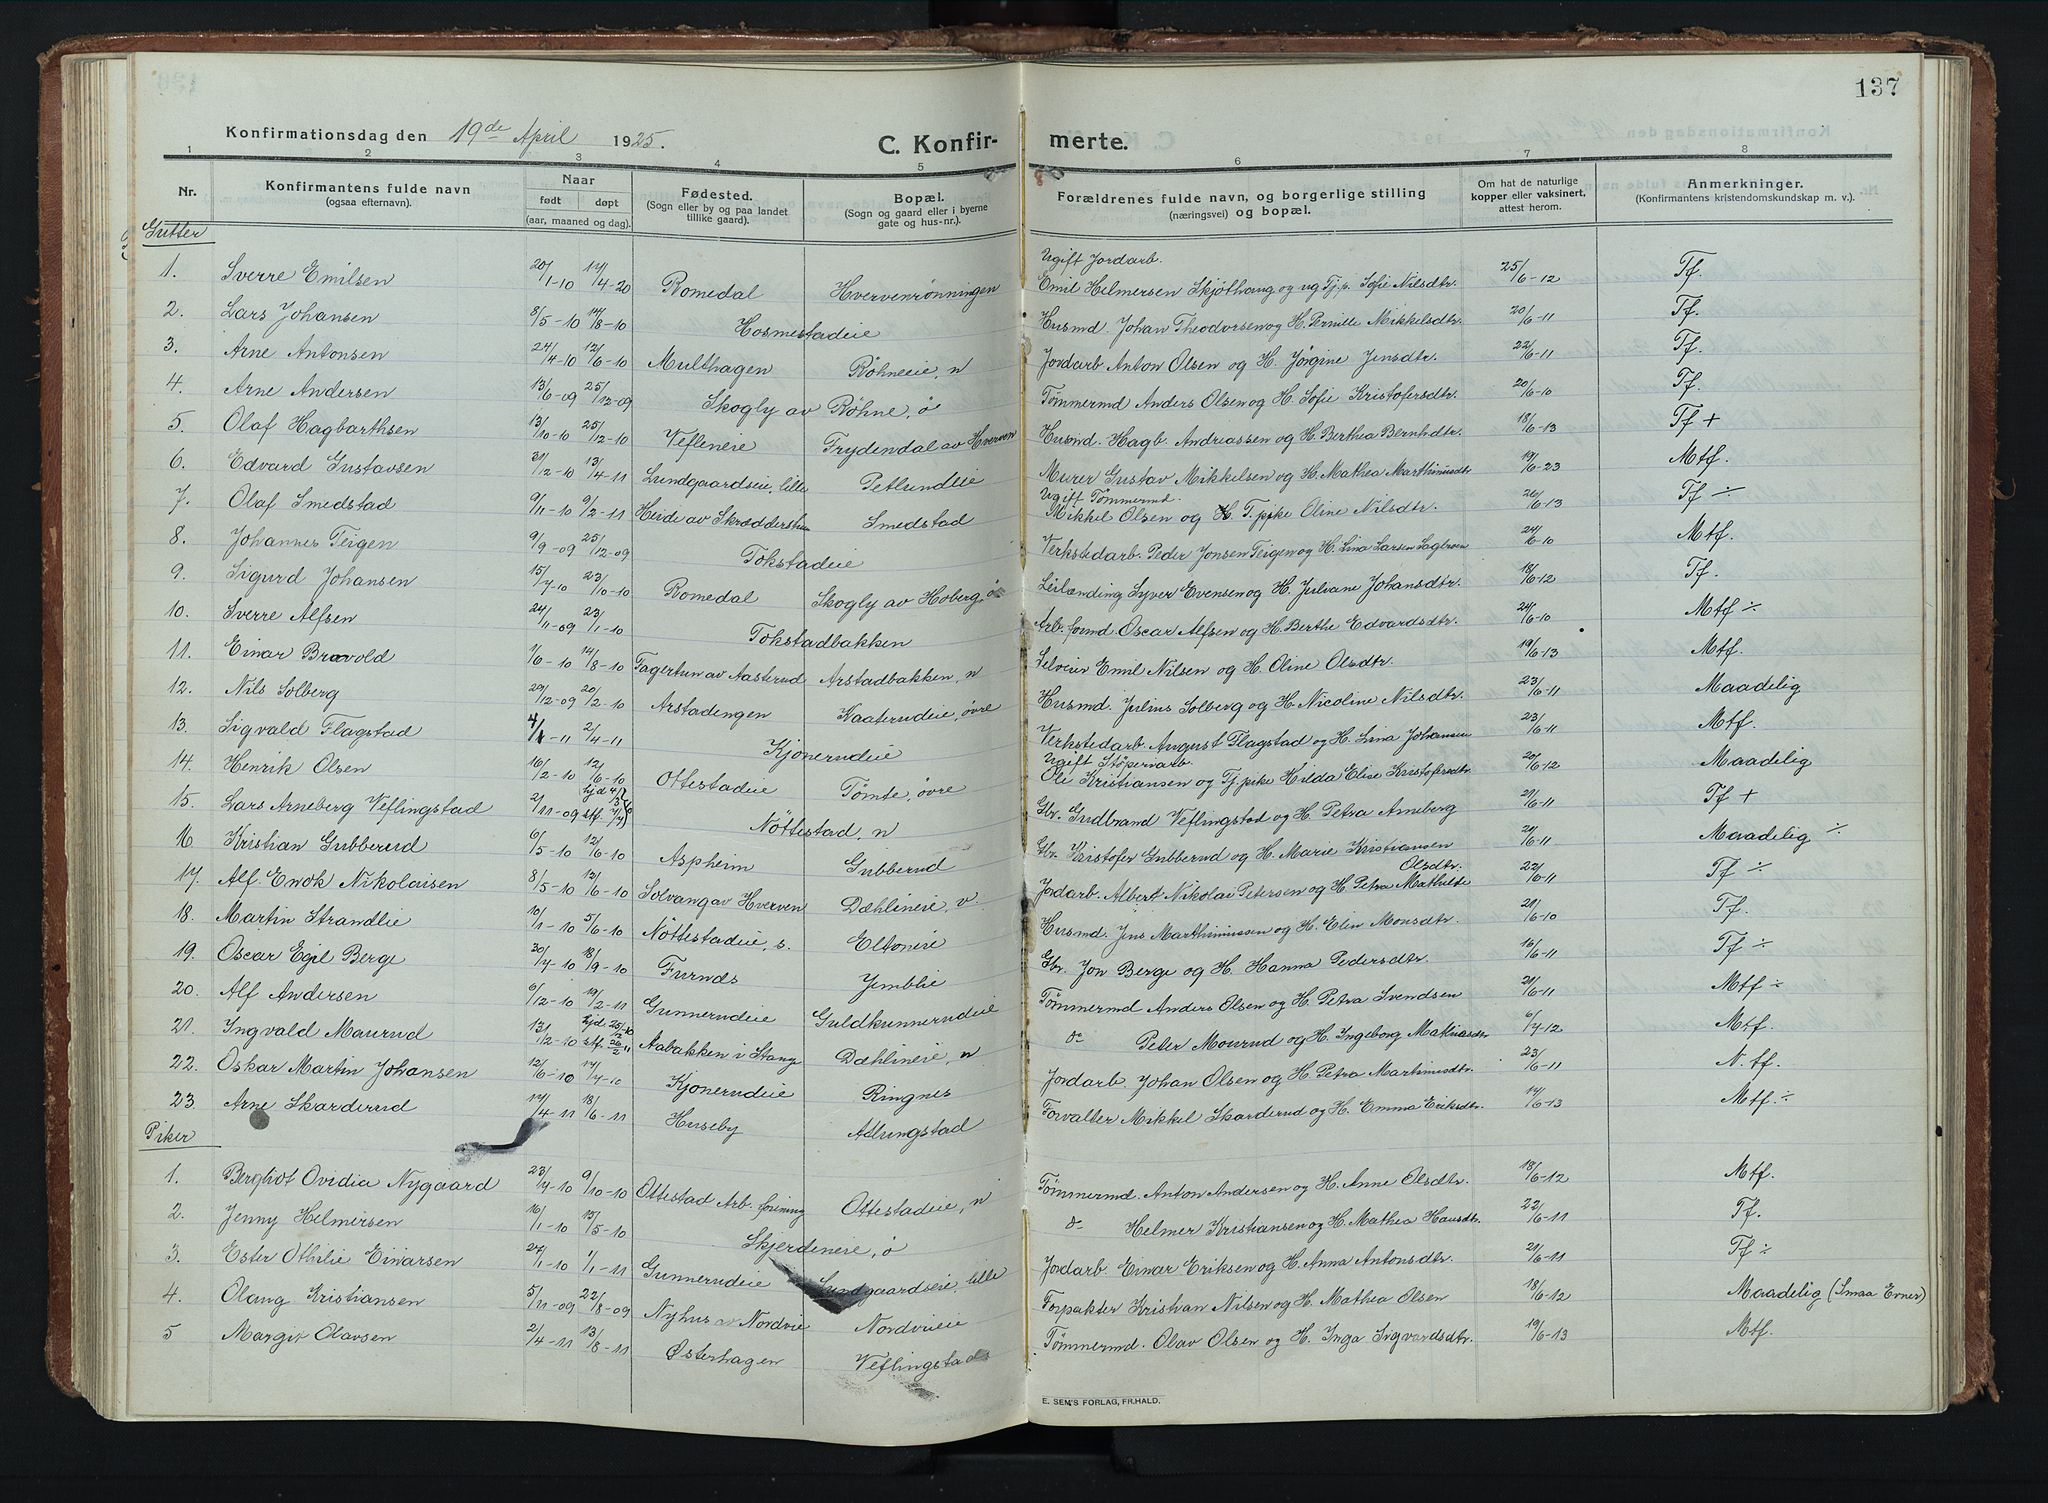 137
Konfirmationsdag den 19de April 1925.
C. Konfirmerte.
1 2 3 4 5 6 7 8
Nr. Konfirmantens fulde navn (ogsaa efternavn). Naar født døpt (aar, maaned og dag). Fødested. (Sogn eller by og paa landet tillike gaard). Bopæl. (Sogn og gaard eller i byerne gate og hus-nr.). Forældrenes fulde navn, og borgerlige stilling (næringsvei) og bopæl. Om hat de naturlige kopper eller vaksinert, attest herom. Anmerkninger. (Konfirmantens kristendomskundskap m. v.).
Gutter
1. Sverre Emilsen 20/1-10 17/4-20 Romedal Hvervenrønningen Ugift Jordarb. Emil Helmersen Skjøthaug og ug Tj.p. Sofie Nilsdtr. 25/6-12 Tf.
2. Lars Johansen 8/5-10 14/8-10 Hosmestadeie Husmd. Johan Theodorsen og H. Pernille Mikkelsdtr. 20/6-11 Tf.
3. Arne Antonsen 24/4-10 12/6-10 Multhagen Røhneeie, n Jordarb. Anton Olsen og H. Jørgine Jensdtr. 22/6-11 Tf.
4. Arne Andersen 13/6-09 25/12-09 Skogly av Røhne, ø Tømmermd Anders Olsen og H. Sofie Kristofersdtr. 20/6-10 Tf.
5. Olaf Hagbarthsen 13/10-10 25/12-10 Vefleneie Frydendal av Hverven Husmd. Hagb. Andreassen og H. Berthea Bernhdtr. 18/6-13 Tf +
6. Edvard Gustavsen 31/12-10 13/4-11 Lundgaardseie, lille Petlundeie Murer Gustav Mikkelsen og H. Mathea Marthinusdtr 19/6-23 Mtf.
7. Olaf Smedstad 9/11-10 9/2-11 Heide av Skrædderstuen Smedstad Ugift Tømmermd. Mikkel Olsen og T. pike Oline Nilsdtr. 26/6-13 Tf ÷
8. Johannes Teigen 9/9-09 25/12-09 Tokstadeie Verkstedarb. Peder Jonsen Teigen og H. Lina Larsen Sagbraaten 24/6-10 Mtf.
9. Sigurd Johansen 15/7-10 23/10-10 Romedal Skogly av Hoberg, ø Leilænding Syver Evensen og H. Juliane Johansdtr. 18/6-12 Tf.
10. Sverre Alfsen 24/11-09 23/1-10 Tokstadbakken Arb. formd. Oscar Alfsen og H. Berthe Edvardsdtr. 24/6-10 Mtf ÷
11. Einar Bravold 1/6-10 14/8-10 Fagertun av Aasterud Arstadbakken, n Selveier Emil Nilsen og H. Oline Olsdtr. 19/6-13 Mtf.
12. Nils Solberg 22/12-09 20/2-10 Arstadengen Kaaterudeie, øvre Husmd. Julius Solberg og H. Nicoline Nilsdtr. 23/6-11 Maadelig
13. Sigvald Flagstad 4/1-11 2/4-11 Kjonerudeie Verkstedarb. August Flagstad og H. Lina Johansen 23/6-11 Mtf.
14. Henrik Olsen 16/2-10 12/6-10 Ottestadeie Tømte, øvre Ugift Støperiarb. Ole Kristiansen og Tj. pike Hilda Elise Kristofersdtr 20/6-12 Maadelig
15. Lars Arneberg Veflingstad 2/11-09 Nøttestad, n Gbr. Gudbrand Veflingstad og H. Petra Arneberg 21/6-11 Tf +
16 Kristian Gubberud 6/5-10 12/6-10 Aspheim Gubberud Gbr. Kristofer Gubberud og H. Marie Kristiansen 21/6-11 Maadelig ÷
17. Alf. Enok Nikolaisen 8/5-10 12/6-10 Solvang av Hverven Dæhlineie, v Jordarb. Albert Nikolai Petersen og H. Petra Mathilde Olsdtr. 22/6-11 Tf ÷
18. Martin Strandlie 10/1-10 5/6-10 Nøttestadeie, s. Eltoneie Husmd. Jens Marthinussen og H. Elin Monsdtr. 21/6-10 Tf.
19. Oscar Egil Berge 30/7-10 18/9-10 Furnds Jemblie Gbr. Jon Berge og H. Hanna Pedersdtr. 16/6-11 Tf ÷
20. Alf Andersen 6/12-10 19/2-11 Gunnerudeie Guldkunnerudeie Tømmermd Anders Olsen og H. Petra Svendsen 21/6-11 Mtf ÷
21. Ingvald Maurud 13/12-10 Aabakken i Stange Dæhlineie, n do Peter Mourud og H. Ingeborg Mathiasdtr 6/7-12 Mtf.
22. Oskar Martin Johansen 12/6-10 17/7-10 Kjonerudeie Ringnes Jordarb. Johan Olsen og H. Petra Martinusdtr. 23/6-11 N. tf.
23. Arne Skarderud 17/4-11 18/6-11 Huseby Atlungstad Forvalter Mikkel Skarderud og H. Emma Eriksdtr. 14/6-13 Mtf. ÷
Piker
1. Bergliot Ovidia Nygaard 23/7-10 9/10-10 Ottestad Arb. forening Ottestadeie, n Tømmermd. Anton Andersen og H. Anne Olsdtr. 18/6-12 Mtf.
2. Jenny Helmersen 16/1-10 15/5-10 Skjerdineie, ø do Helmer Kristiansen og H. Mathea Hansdtr. 22/6-11 Tf.
3. Ester Othilie Einarsen 27/1-10 1/1-11 Gunnerudeie Lundgaardseie, lille Jordarb. Einar Eriksen og H. Anna Antonsdtr. 21/6-11 Tf ÷
4. Olaug Kristiansen 5/11-09 22/8-09 Nyhus av Nordvie Nordvieie Forpakter Kristian Nilsen og H. Mathea Olsen 18/6-12 Maadelig (Smaa Evner)
5 Margit Olavsen 2/4-11 13/8-11 Østerhagen Veflingstad Tømmermd. Olav Olsen og H. Inga Ingvardsdtr. 19/6-13 Mtf.
E. SEM'S FORLAG, FR.HALD.